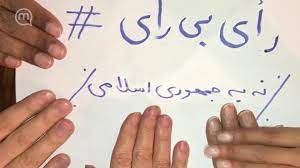 # رأی بی رأی
/ نه به جمهوری اسلامی /